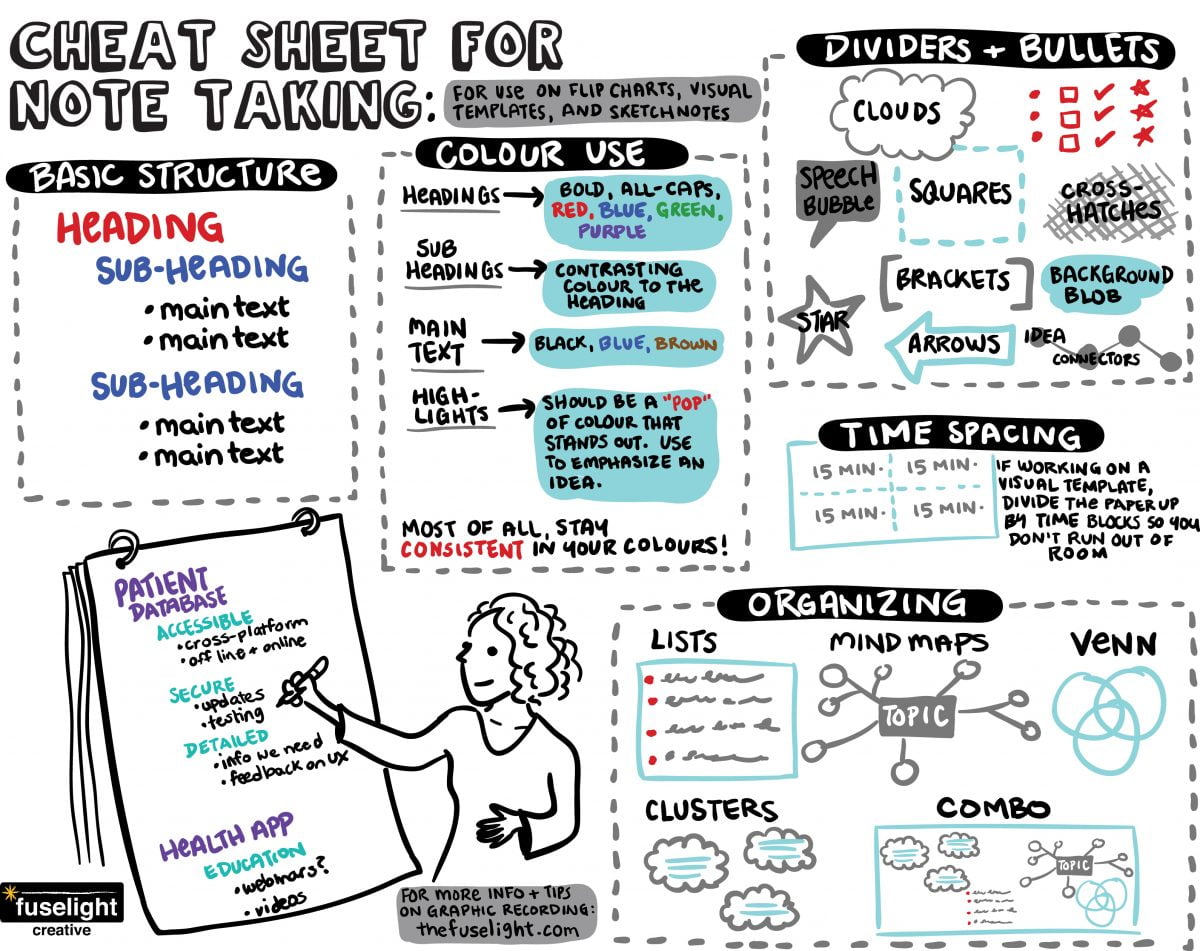 CHEAT SHEET FOR
NOTE TAKING:
FOR USE ON FLIP CHARTS, VISUAL
TEMPLATES, AND SKETCHNOTES
BASIC STRUCTURE
HEADING
SUB-HEADING
• main text
• main text
SUB-HEADING
• main text
• main text
COLOUR USE
HEADINGS
BOLD, ALL-CAPS,
RED, BLUE, GREEN,
PURPLE
SUB
HEADINGS
CONTRASTING
COLOUR TO THE
HEADING
MAIN
TEXT
BLACK, BLUE, BROWN
HIGH-
LIGHTS
SHOULD BE A "POP"
OF COLOUR THAT
STANDS OUT. USE
TO EMPHASIZE AN
IDEA.
MOST OF ALL, STAY
CONSISTENT IN YOUR COLOURS!
DIVIDERS + BULLETS
CLOUDS
SPEECH
BUBBLE
SQUARES
CROSS-
HATCHES
BRACKETS
BACKGROUND
BLOB
STAR
ARROWS
IDEA
CONNECTORS
TIME SPACING
15 MIN. 15 MIN.
15 MIN. 15 MIN.
IF WORKING ON A
VISUAL TEMPLATE,
DIVIDE THE PAPER UP
BY TIME BLOCKS SO YOU
DON'T RUN OUT OF
ROOM
PATIENT
DATABASE
ACCESSIBLE
• cross-platform
• off line + online
SECURE
• updates
• testing
DETAILED
• info we need
• feedback on UX
HEALTH APP
EDUCATION
• webinars?
• videos
ORGANIZING
LISTS
MIND MAPS
TOPIC
VENN
CLUSTERS
COMBO
TOPIC
FOR MORE INFO + TIPS
ON GRAPHIC RECORDING:
thefuselight.com
fuselight
creative